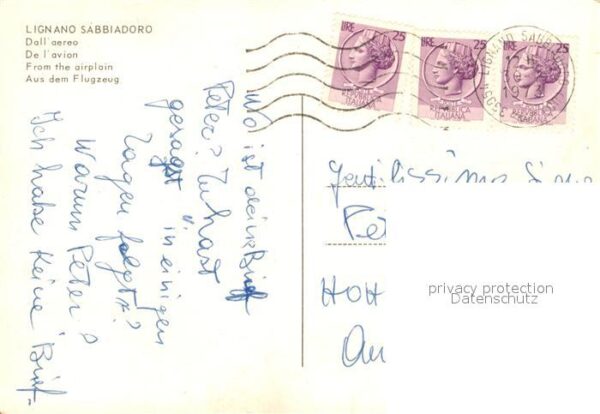 LIGNANO SABBIADORO
Dall'aereo
De l'avion
From the airplain
Aus dem Flugzeug
LIRE 25
LIRE 25
LIRE 25
REPUBBLICA
ITALIANA
LIGNANO SABBIADORO
Wo ist deine Brief
Peter? Du hast
gesagst "in einigen
Tagen folgt"?
Warum Peter?
Ich habe keine Brief
Gentilissimo
Pe
HOH
privacy protection
Datenschutz